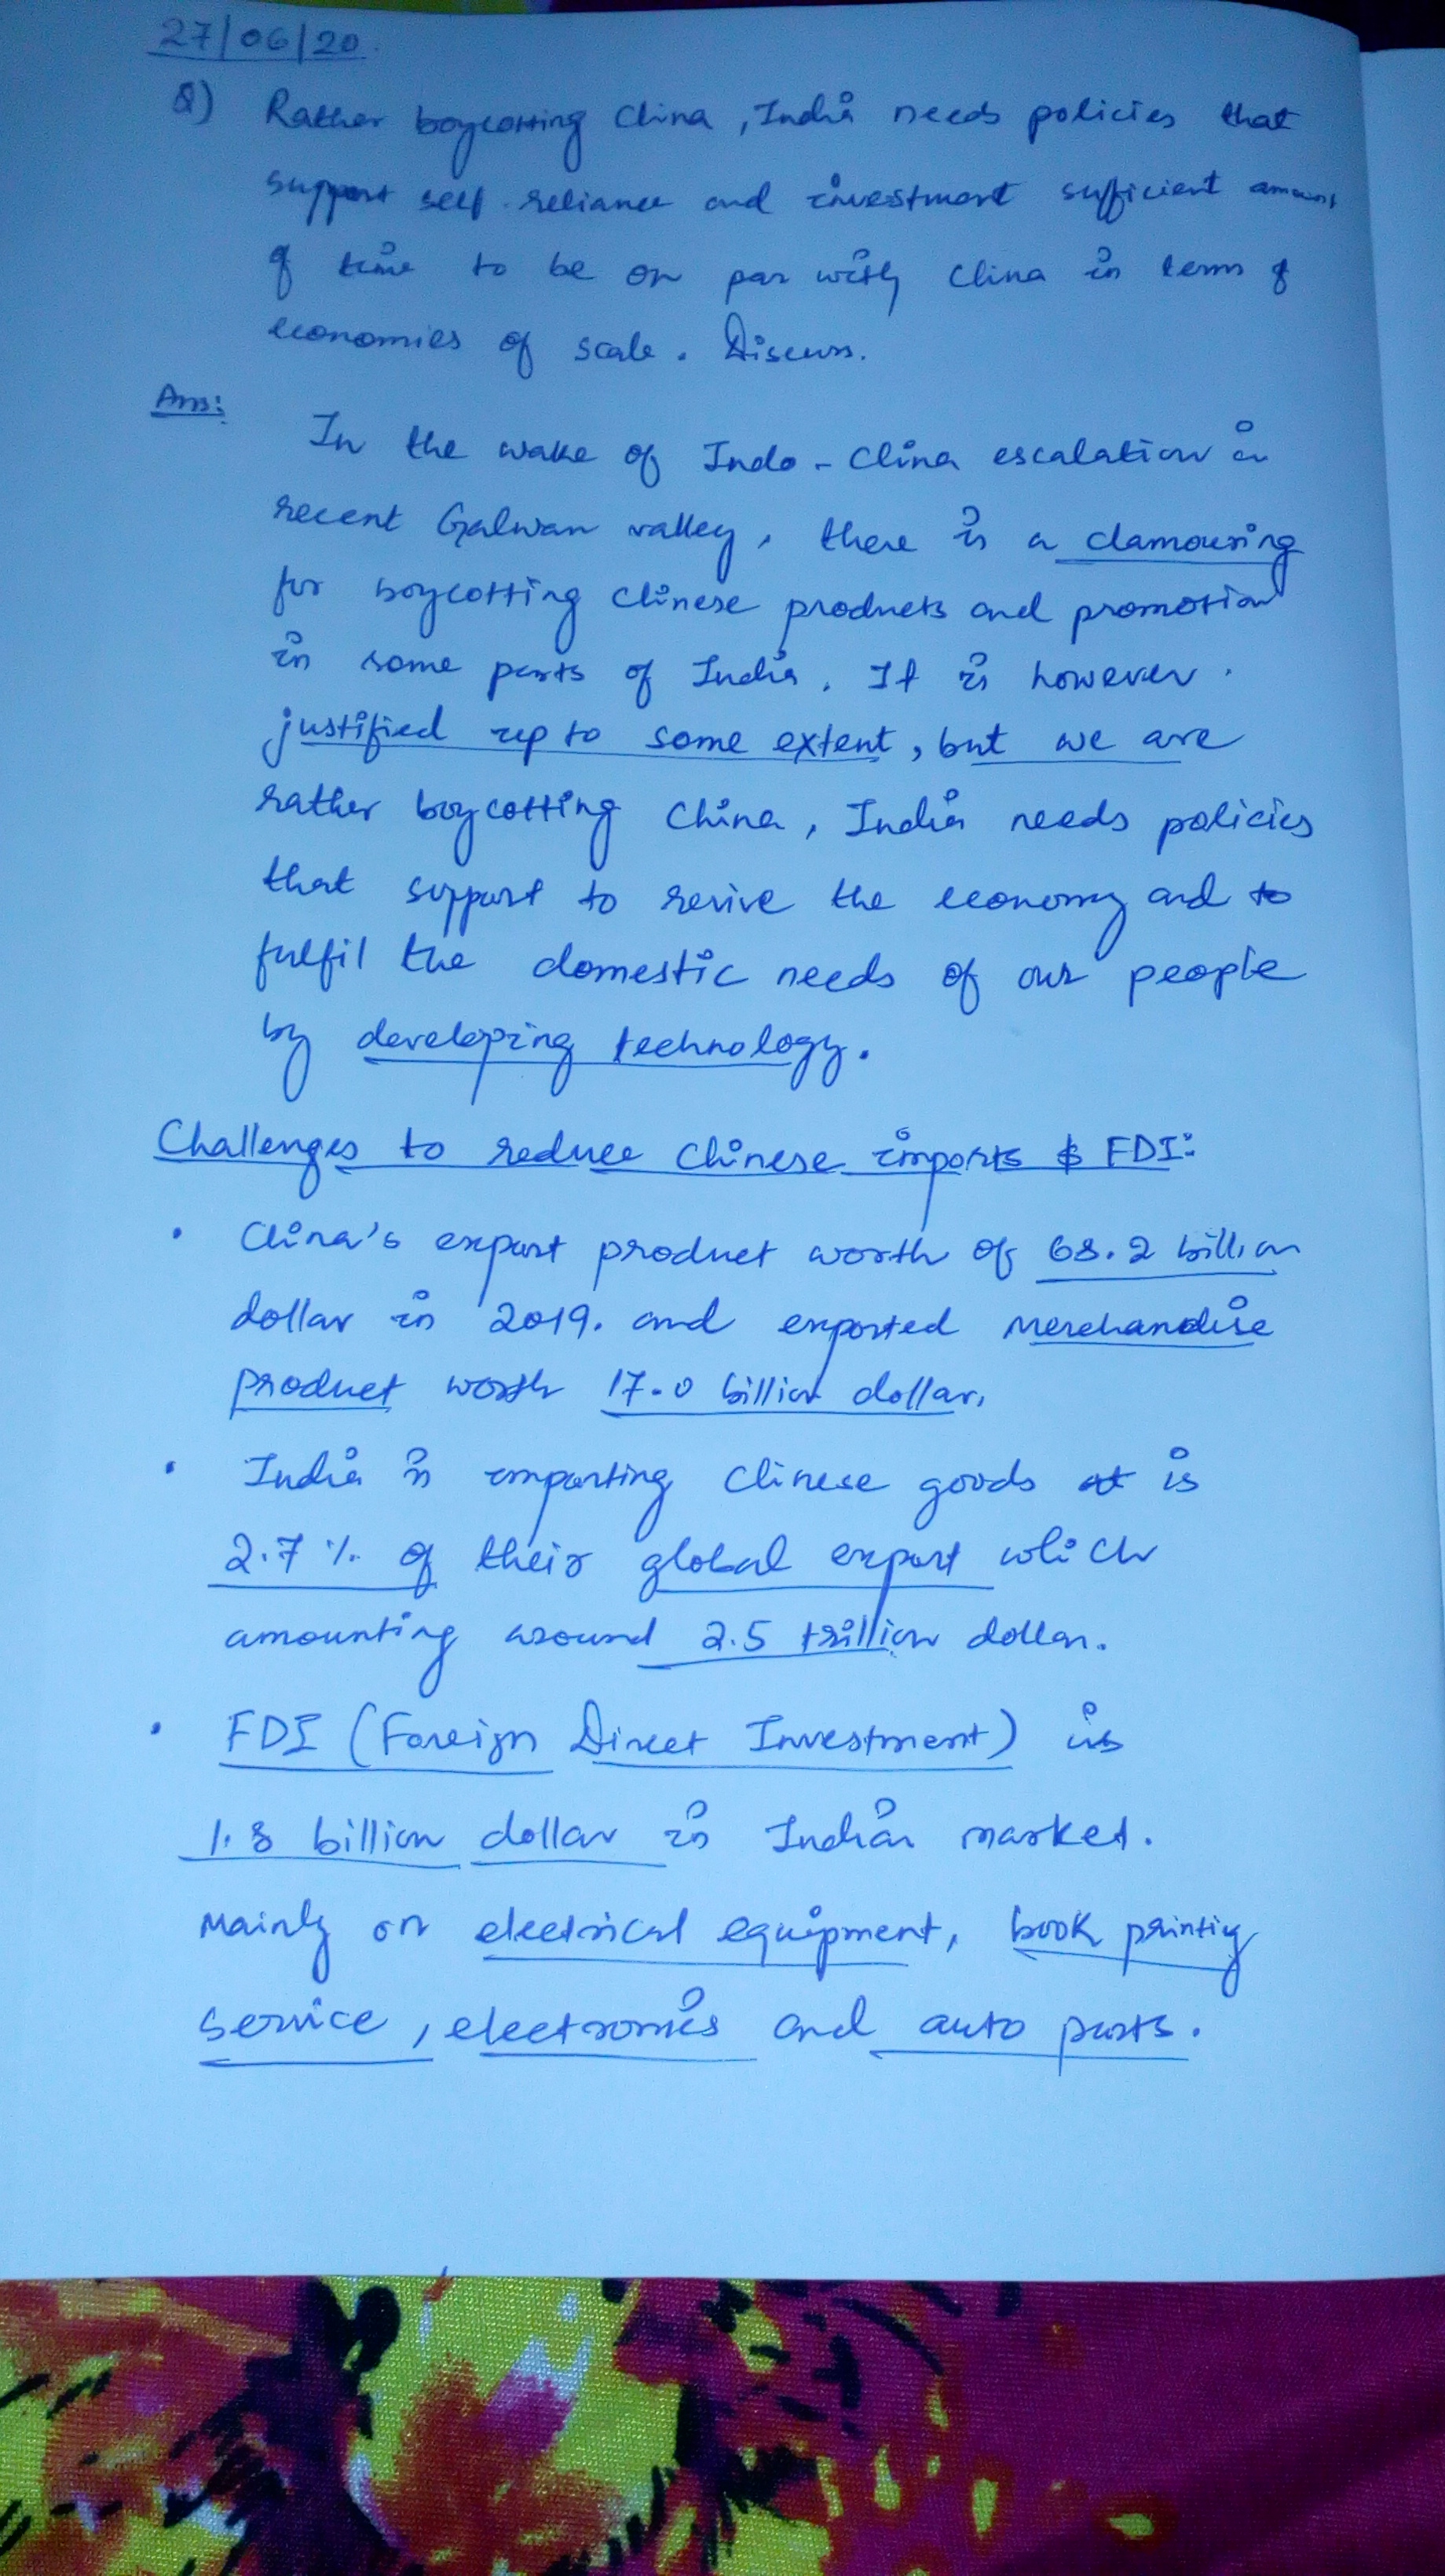 27/06/20.
Q) Rather boycotting China, India needs policies that
support self-reliance and investment sufficient amount
of time to be on par with China in term of
economies of scale. Discuss.
Ans:
In the wake of Indo-China escalation in
recent Galwan valley, there is a clamouring
for boycotting Chinese products and promotion
in some parts of India. It is however.
justified up to some extent, but we are
rather boycotting China, India needs policies
that support to revive the economy and to
fulfil the domestic needs of our people
by developing technology.
Challenges to reduce Chinese imports & FDI:
• China's export product worth of 68.2 billion
dollar in 2019. and exported Merchandise
product worth 17.0 billion dollar.
• India is importing Chinese goods is
2.7 % of their global export which
amounting around 2.5 trillion dollar.
• FDI (Foreign Direct Investment) is
1.8 billion dollar in Indian market.
Mainly on electrical equipment, book printing
service, electronics and auto parts.